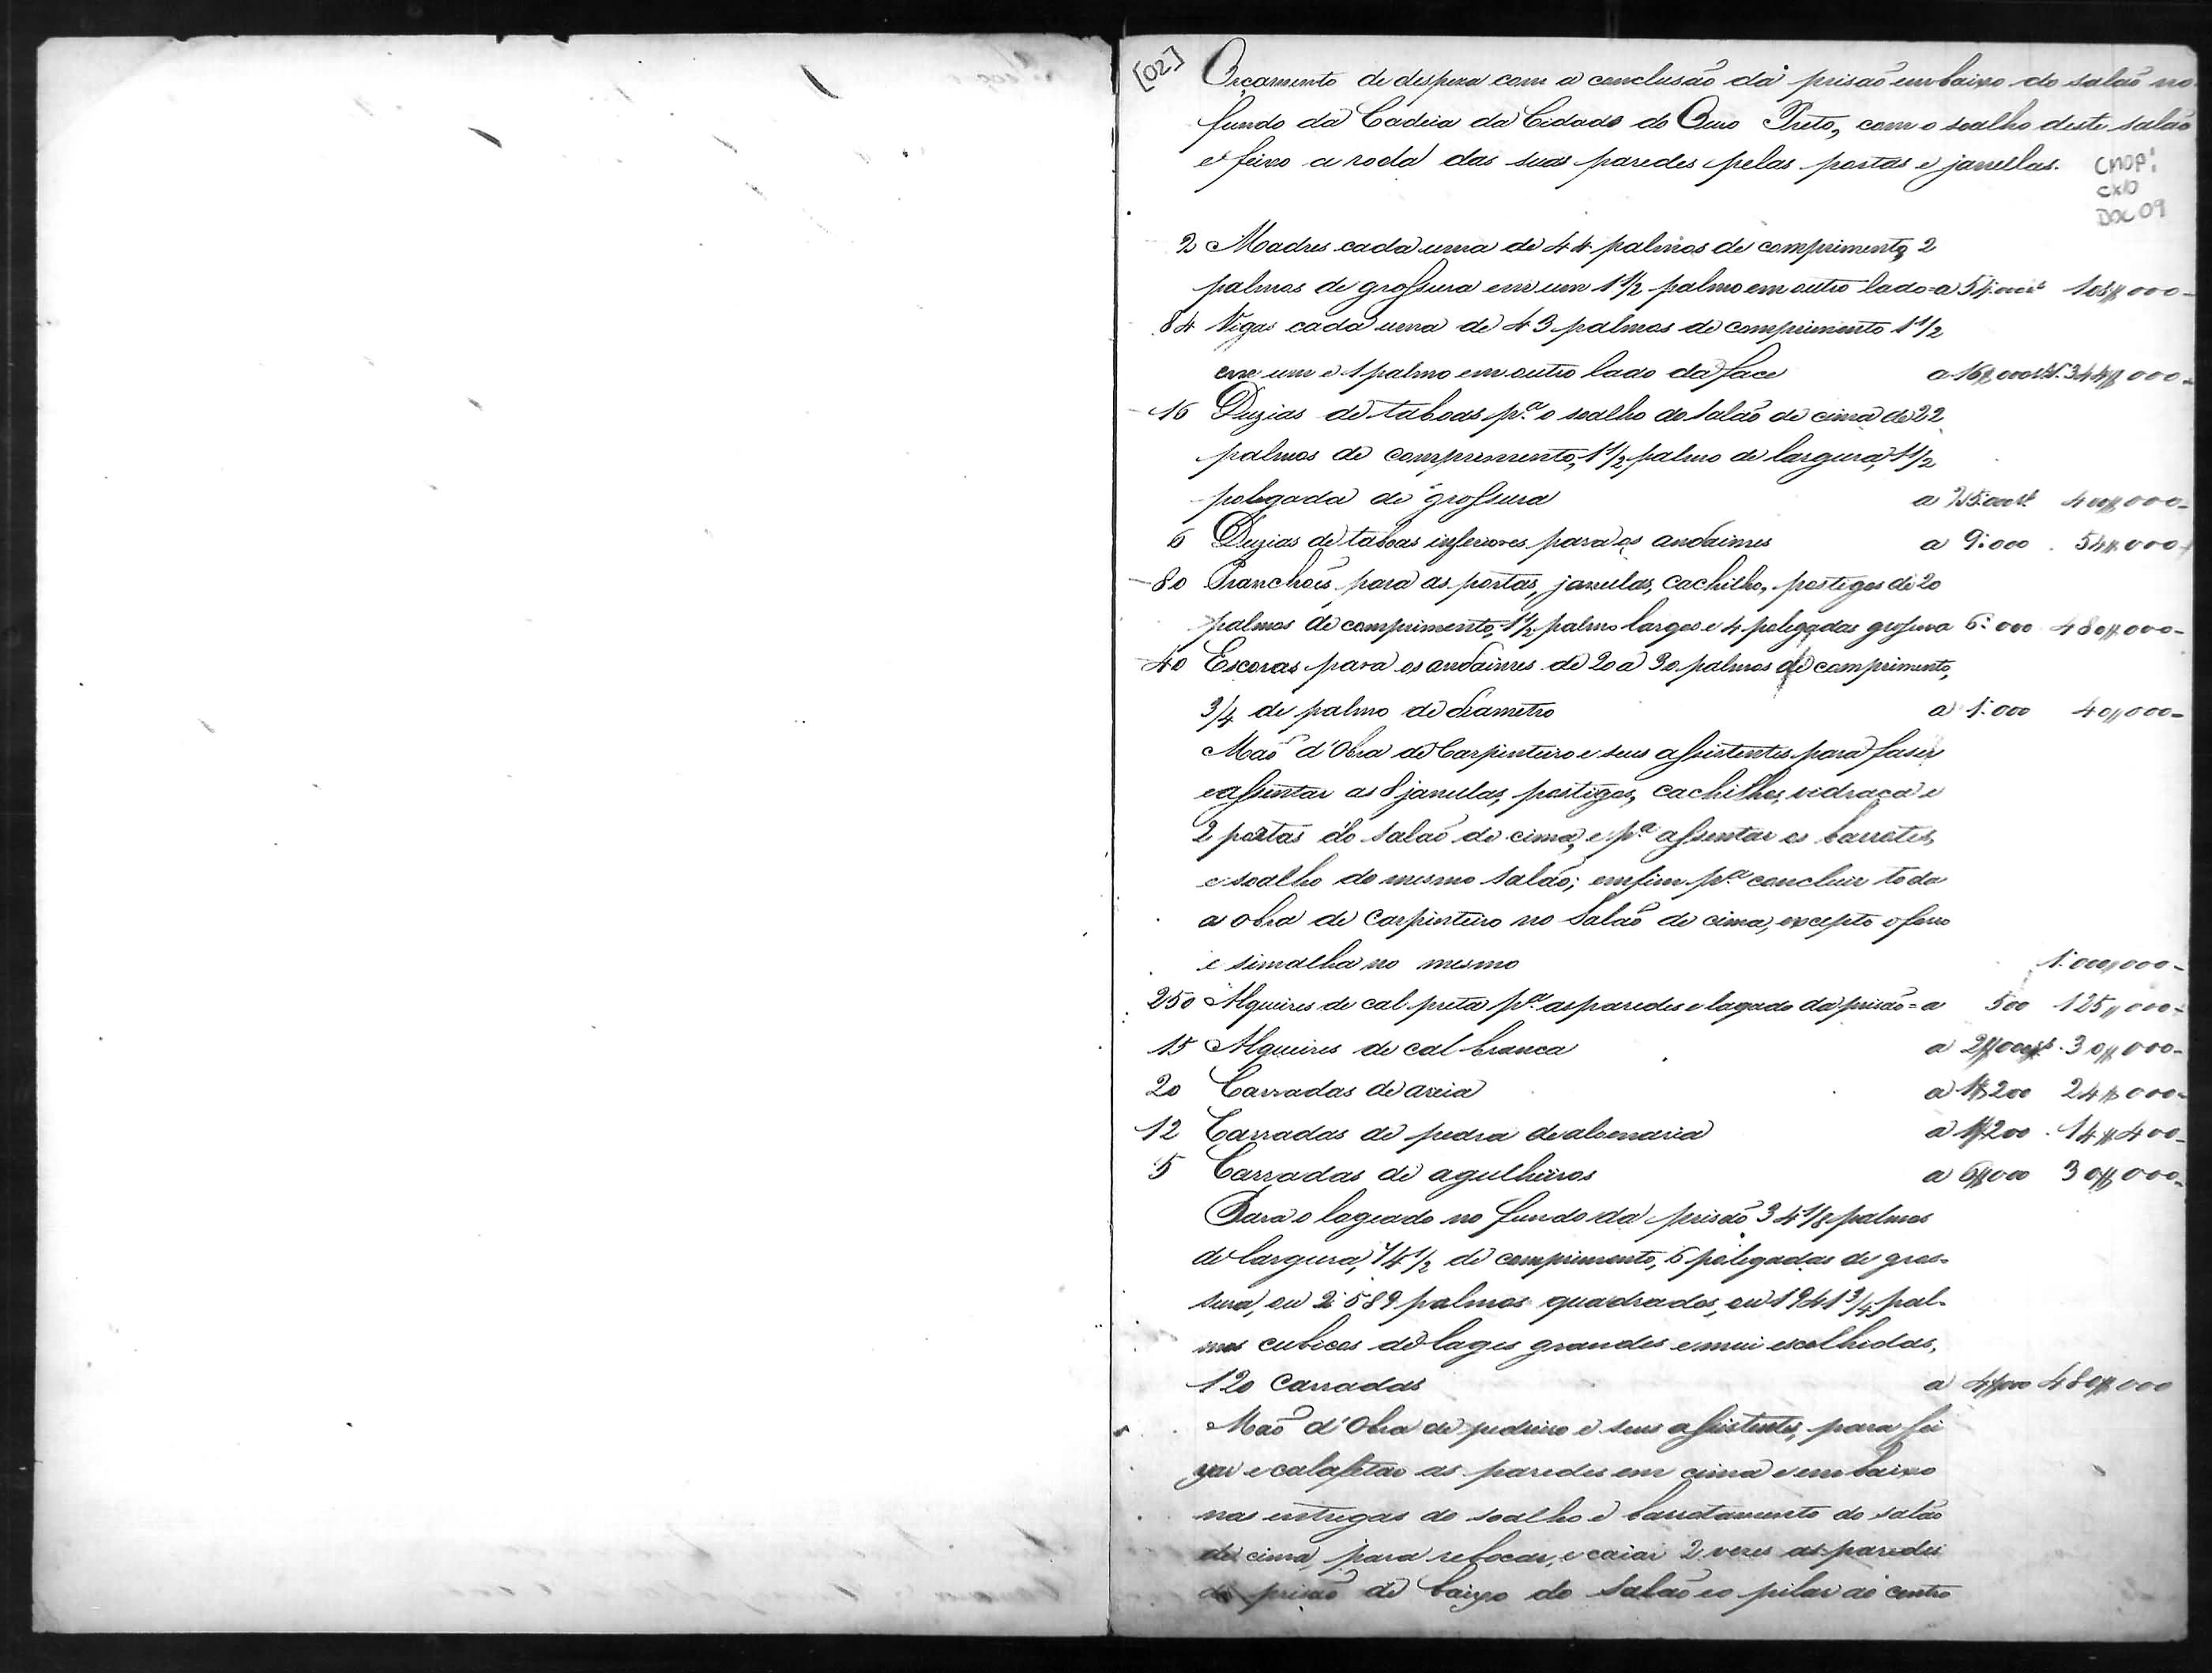 [02]
Orçamento de despeza com a conclusão da prisaõ embaixo do salaõ no
fundo da Cadeia da Cidade do Ouro Preto, com o soalho deste salaõ
e feixo a roda das suas paredes pelas portas e janellas.
CMOP!
CX10
DOC 09
2 Madres cada uma de 44 palmos de comprimento, 2
palmos de grossura em um 1 1/2 palmo em outro lado = a 54:000 108$000
84 Vigas cada uma de 43 palmos de comprimento 1 1/2
em um e 1 palmo em outro lado da face a 16$000 1:344$000
16 Duzias de taboas p.ª o soalho do salaõ de cima de 22
palmos de comprimento, 1 1/2 palmo de largura, 1 1/2
polegada de grossura a 25:000 400$000
6 Duzias de taboas inferiores para os andaimes a 9:000 54$000
80 Pranchoẽs para as portas, janellas, cachilho, postigos de 20
palmos de comprimento, 1 1/2 palmo largos e 4 polegadas grossura 6:000 480$000
40 Escoras para os andaimes de 20 a 30 palmos de comprimento,
3/4 de palmo de diametro a 1:000 40,,000
Maõ d'Obra de Carpinteiro e seus assistentes para faser
e assentar as 8 janellas, postigos, cachilhos, vidraça e
2 portas do salaõ de cima, e p.ª assentar os barrotes,
e soalho do mesmo salaõ; emfim p.ª concluir toda
a obra de carpinteiro no Salaõ de cima, excepto o forro
e simalha no mesmo 1:000,000
250 Alqueires de cal preta p.ª as paredes e lagado da prisaõ = a 500 125,,000
15 Alqueires de cal branca a 2$000 30$000
20 Carradas de areia a 1$200 24$000
12 Carradas de pedra de alvenaria a 1$200 14$400
5 Carradas de agulheiros a 6$000 30$000
Para o lageado no fundo da prisaõ 34 1/8 palmos
de largura, 74 1/2 de comprimento, 6 polegadas de gros-
sura, ou 2589 palmos quadrados, ou 1941 3/4 pal-
mos cubicos de lages grandes e mui escolhidas,
120 Carradas a 4$000 480$000
Maõ d'Obra de pedreiro e seus assistentes, para fei
xar e calafetar as paredes em cima e em baixo
nas entregas do soalho e barrotamento do salaõ
de cima, para rebocar, e caiar 2 veses as paredes
da prisaõ de baixo do salaõ e o pilar ao centro